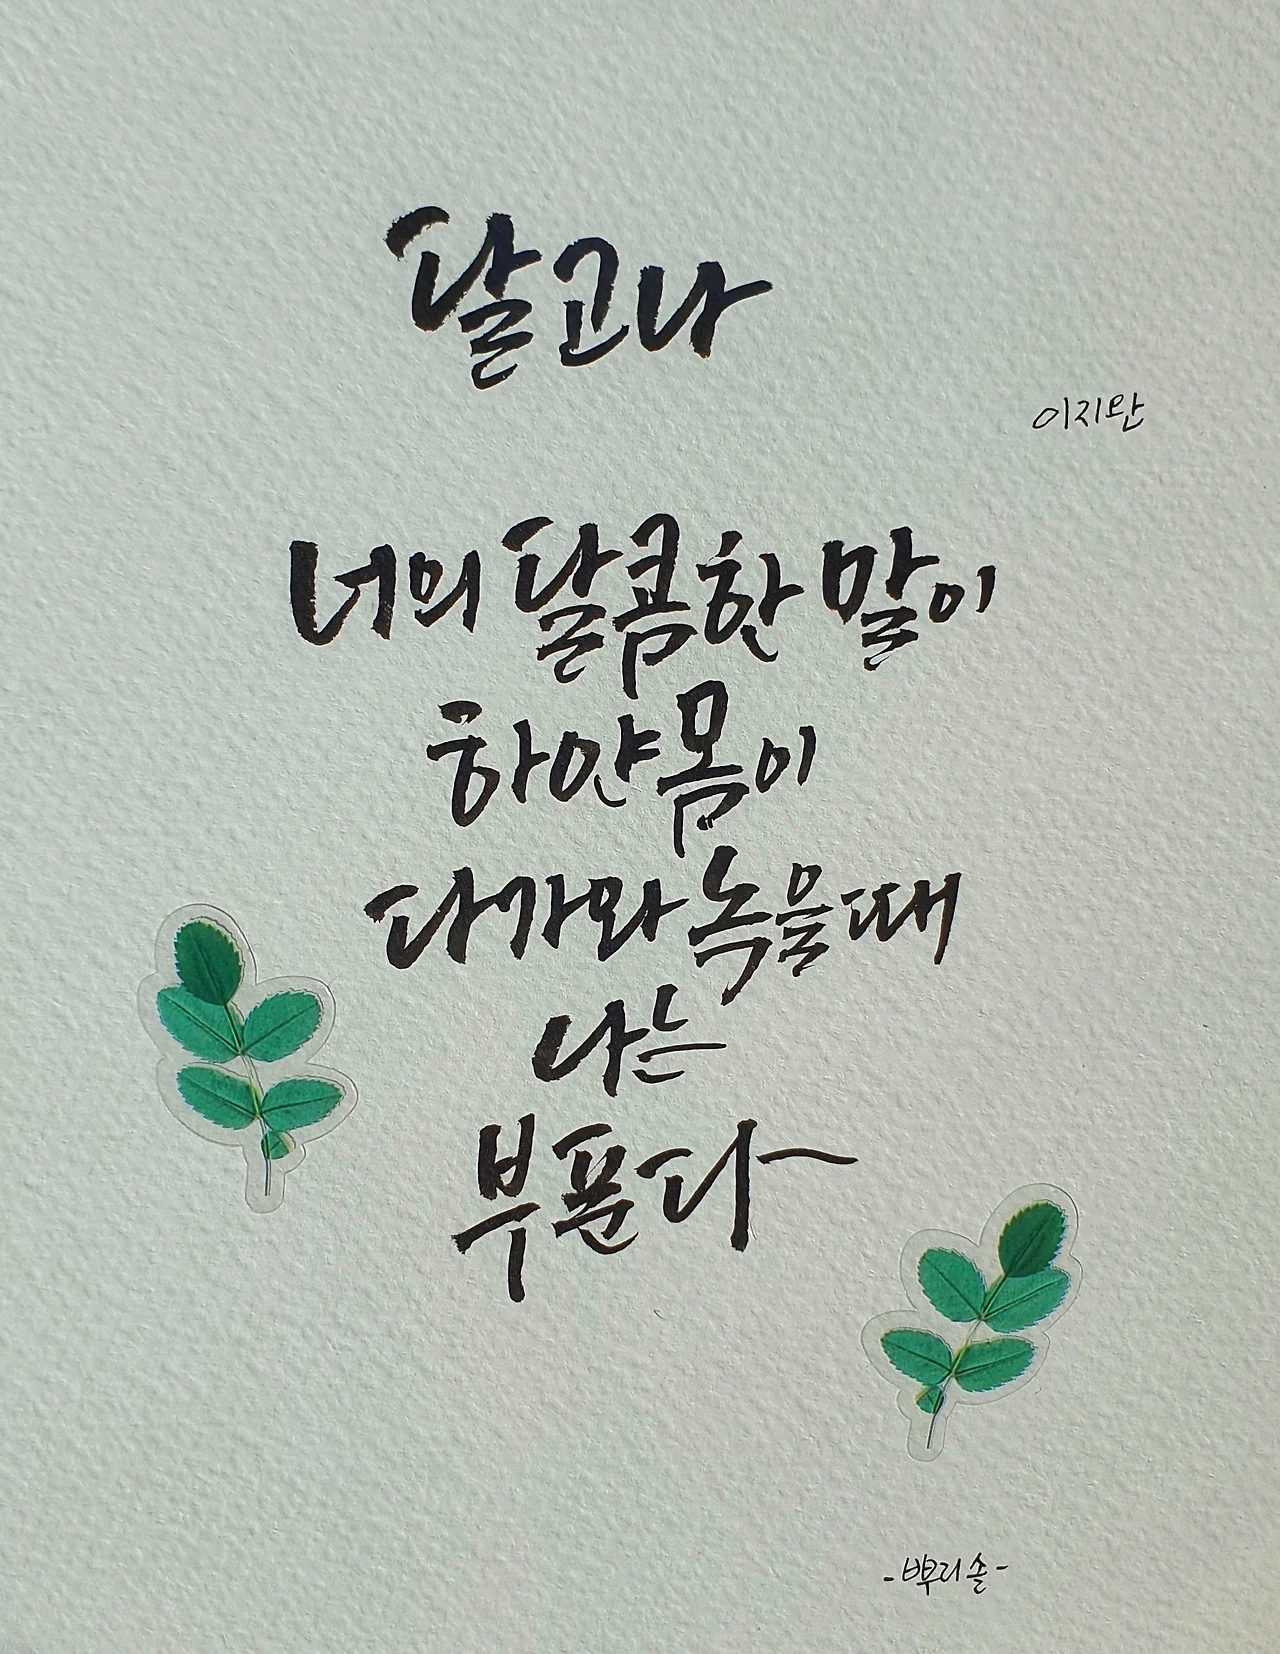 달고나
이지완
너의 달콤한 말이
하얀 몸이
다가와 녹을 때
나는
부푼다~
-뿌리솔-